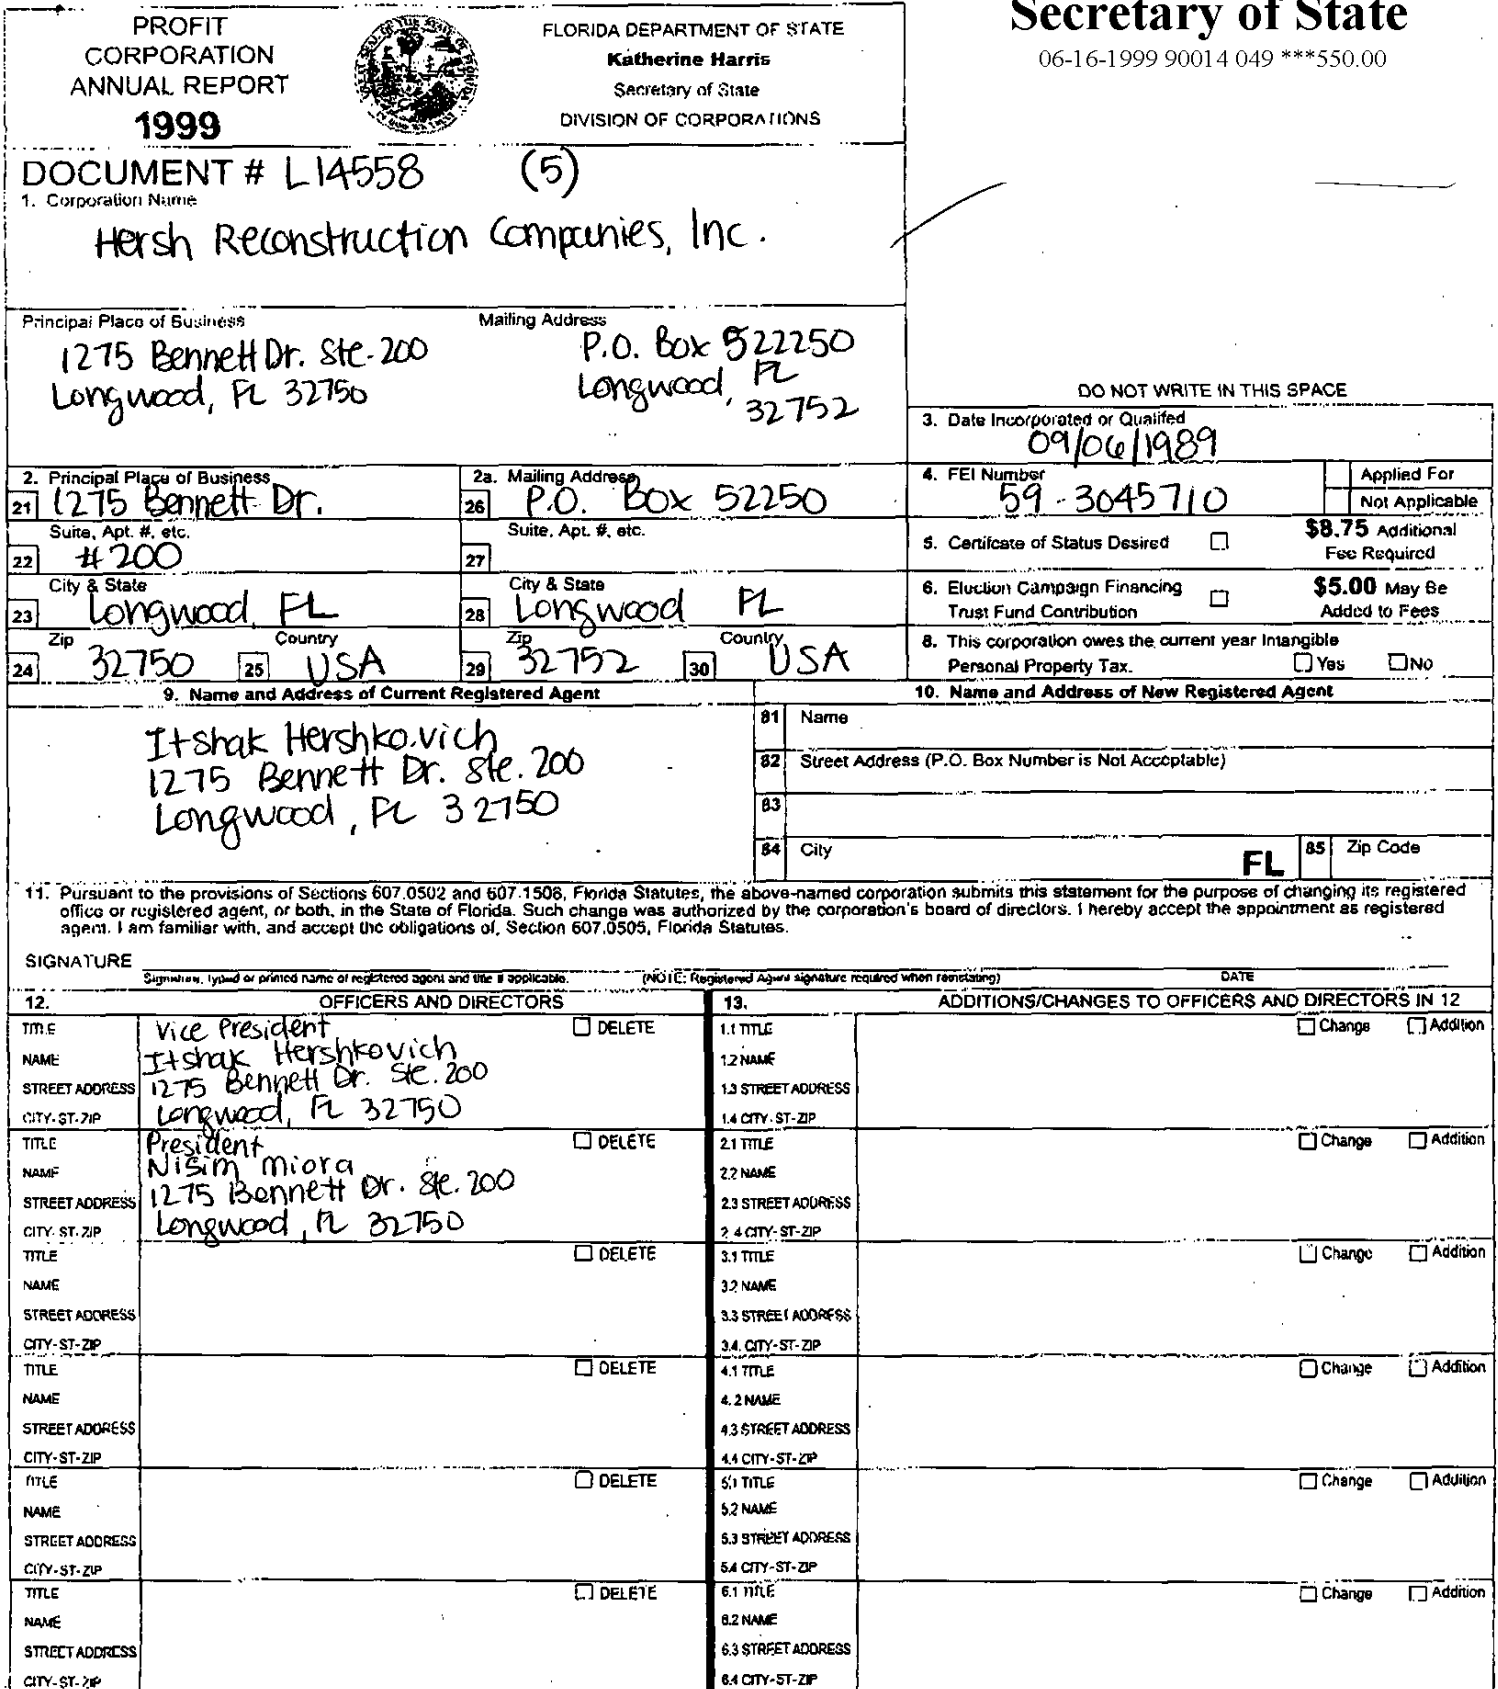 PROFIT
CORPORATION
ANNUAL REPORT
1999
FLORIDA DEPARTMENT OF STATE
Katherine Harris
Secretary of State
DIVISION OF CORPORATIONS
Secretary of State
06-16-1999 90014 049 ***550.00
DOCUMENT # L14558 (5)
1. Corporation Name
Hersh Reconstruction Companies, Inc.
Principal Place of Business
1275 Bennett Dr. Ste. 200
Longwood, FL 32750
Mailing Address
P.O. Box 522250
Longwood, FL
32752
DO NOT WRITE IN THIS SPACE
3. Date Incorporated or Qualifed
09/06/1989
2. Principal Place of Business
21 1275 Bennett Dr.
Suite, Apt. #, etc.
22 #200
City & State
23 Longwood, FL
Zip Country
24 32750 25 USA
2a. Mailing Address
26 P.O. Box 52250
Suite, Apt. #, etc.
27
City & State
28 Longwood FL
Zip Country
29 32752 30 USA
4. FEI Number
59-3045710
Applied For
Not Applicable
5. Certifcate of Status Desired
$8.75 Additional
Fee Required
6. Election Campaign Financing
Trust Fund Contribution
$5.00 May Be
Added to Fees
8. This corporation owes the current year Intangible
Personal Property Tax. Yes NO
9. Name and Address of Current Registered Agent
Itshak Hershkovich
1275 Bennett Dr. Ste. 200
Longwood, FL 32750
10. Name and Address of New Registered Agent
81 Name
82 Street Address (P.O. Box Number is Not Acceptable)
83
84 City FL 85 Zip Code
11. Pursuant to the provisions of Sections 607.0502 and 607.1508, Florida Statutes, the above-named corporation submits this statement for the purpose of changing its registered
office or registered agent, or both, in the State of Florida. Such change was authorized by the corporation's board of directors. I hereby accept the appointment as registered
agent. I am familiar with, and accept the obligations of, Section 607.0505, Florida Statutes.
SIGNATURE
Signature, typed or printed name of registered agent and title if applicable. (NOTE: Registered Agent signature required when reinstating) DATE
12. OFFICERS AND DIRECTORS
TITLE Vice President DELETE
NAME Itshak Hershkovich
STREET ADDRESS 1275 Bennett Dr. Ste. 200
CITY-ST-ZIP Longwood, FL 32750
TITLE President DELETE
NAME Nisim Miora
STREET ADDRESS 1275 Bennett Dr. Ste. 200
CITY-ST-ZIP Longwood, FL 32750
TITLE DELETE
NAME
STREET ADDRESS
CITY-ST-ZIP
TITLE DELETE
NAME
STREET ADDRESS
CITY-ST-ZIP
TITLE DELETE
NAME
STREET ADDRESS
CITY-ST-ZIP
TITLE DELETE
NAME
STREET ADDRESS
CITY-ST-ZIP
13. ADDITIONS/CHANGES TO OFFICERS AND DIRECTORS IN 12
1.1 TITLE Change Addition
1.2 NAME
1.3 STREET ADDRESS
1.4 CITY-ST-ZIP
2.1 TITLE Change Addition
2.2 NAME
2.3 STREET ADDRESS
2.4 CITY-ST-ZIP
3.1 TITLE Change Addition
3.2 NAME
3.3 STREET ADDRESS
3.4. CITY-ST-ZIP
4.1 TITLE Change Addition
4.2 NAME
4.3 STREET ADDRESS
4.4 CITY-ST-ZIP
5.1 TITLE Change Addition
5.2 NAME
5.3 STREET ADDRESS
5.4 CITY-ST-ZIP
6.1 TITLE Change Addition
6.2 NAME
6.3 STREET ADDRESS
6.4 CITY-ST-ZIP